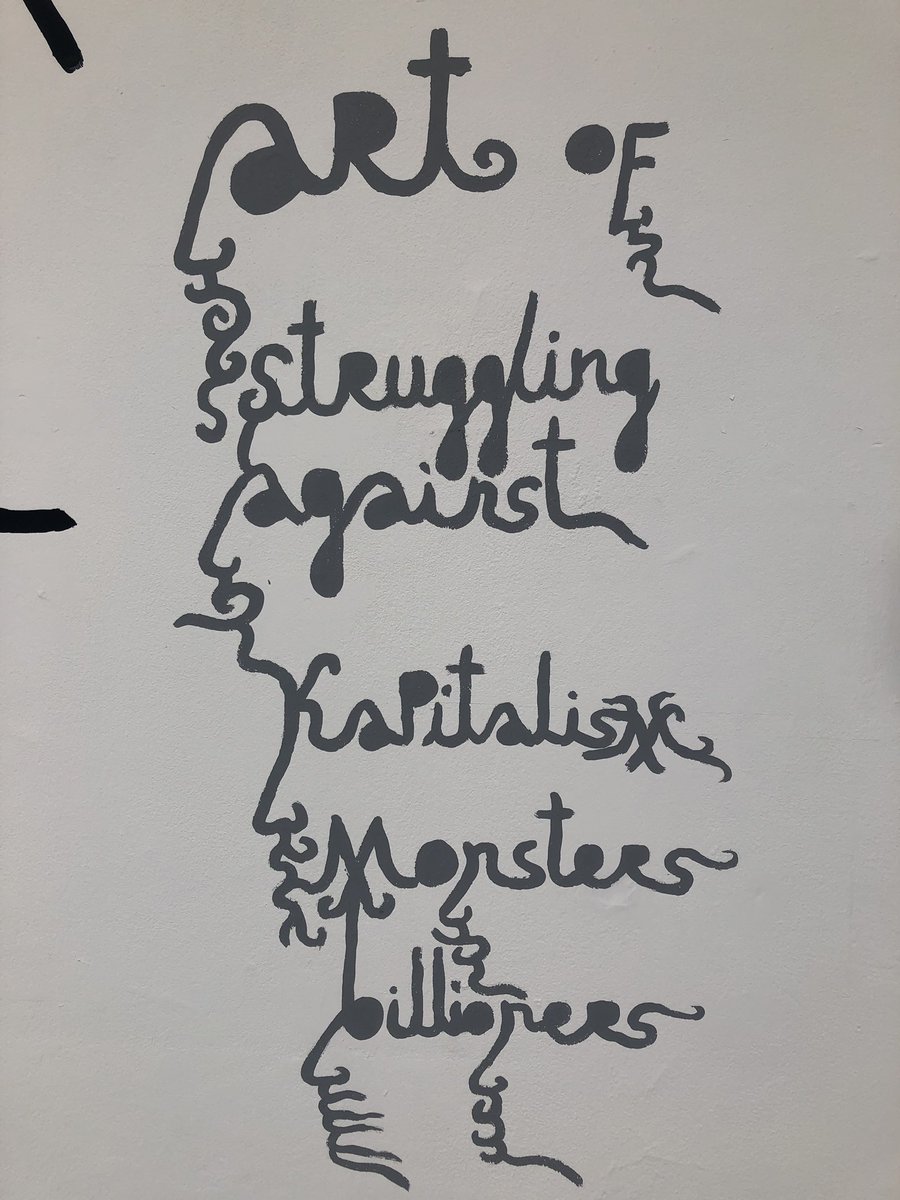 aRt OF
struggling
against
KaPitalism
Monsters
billioneers